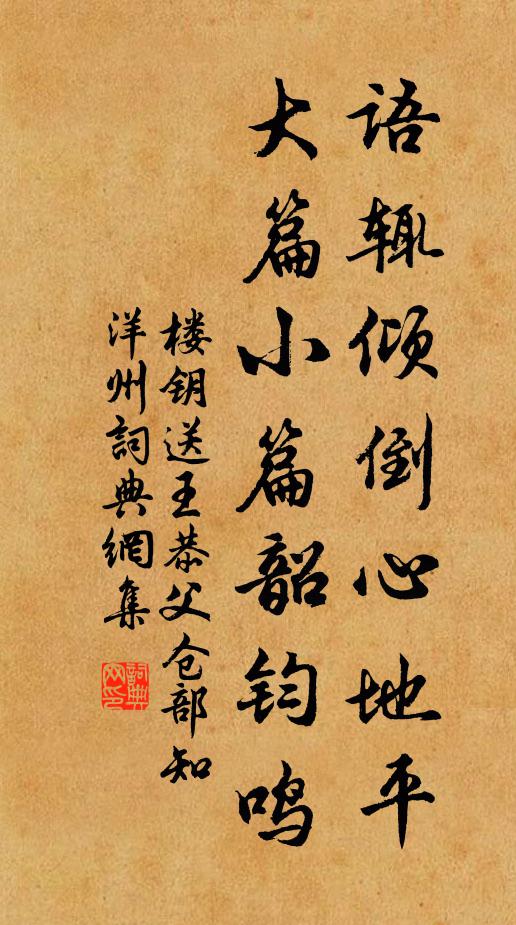 语辄倾倒心地平
大篇小篇韶钧鸣
楼钥送王恭父仓部知
洋州詞典網集
詞典网印